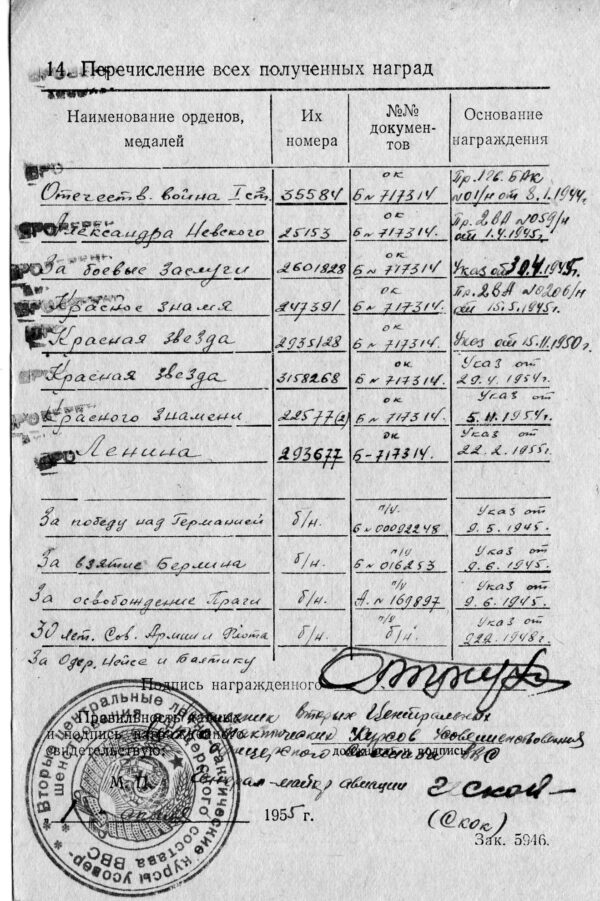 14. Перечисление всех полученных наград
Наименование орденов, медалей Их номера №№ документов Основание награждения
Отечеств. война I ст. 35584 ок Б № 717314 Пр. 17б. БАК №01/н от 8.1.1944г.
Александра Невского 25153 ок Б № 717314 Пр. 2ВА №059/н от 1.4.1945г.
За боевые заслуги 2601828 ок Б № 717314. Указ от 30.4.1945г.
Красное знамя 247391 ок Б № 717314. Пр. 2ВА №0206/н от 15.5.1945г.
Красная звезда 2935128 ок Б № 717314. Указ от 15.11.1950г.
Красная звезда 3158268 ок Б № 717314. Указ от 29.4.1954г.
Красного знамени 22577(2) ок Б № 717314 Указ от 5.11.1954г.
Ленина 293677 ок Б-717314. Указ от 22.2.1955г.
За победу над Германией б/н. п/у. Б №0092248 Указ от 9.5.1945г.
За взятие Берлина б/н. п/у Б №016253 Указ от 9.6.1945г.
За освобождение Праги б/н. п/у А. №169897 Указ от 9.6.1945г.
30 лет. Сов. Армии и Флота б/н. п/у б/н. Указ от 22.2.1948г.
За Одер, Нейсе и Балтику
Подпись награжденного
Правильность вторых Центральных
и подпись тактических Курсов Усовершенствования
свидетельствую: офицерского состава ВВС
М. П. Генерал-майор авиации
1955 г. (Скок)
Зак. 5946.
Вторые центральные летно-тактические курсы усовершенствования офицерского состава ВВС